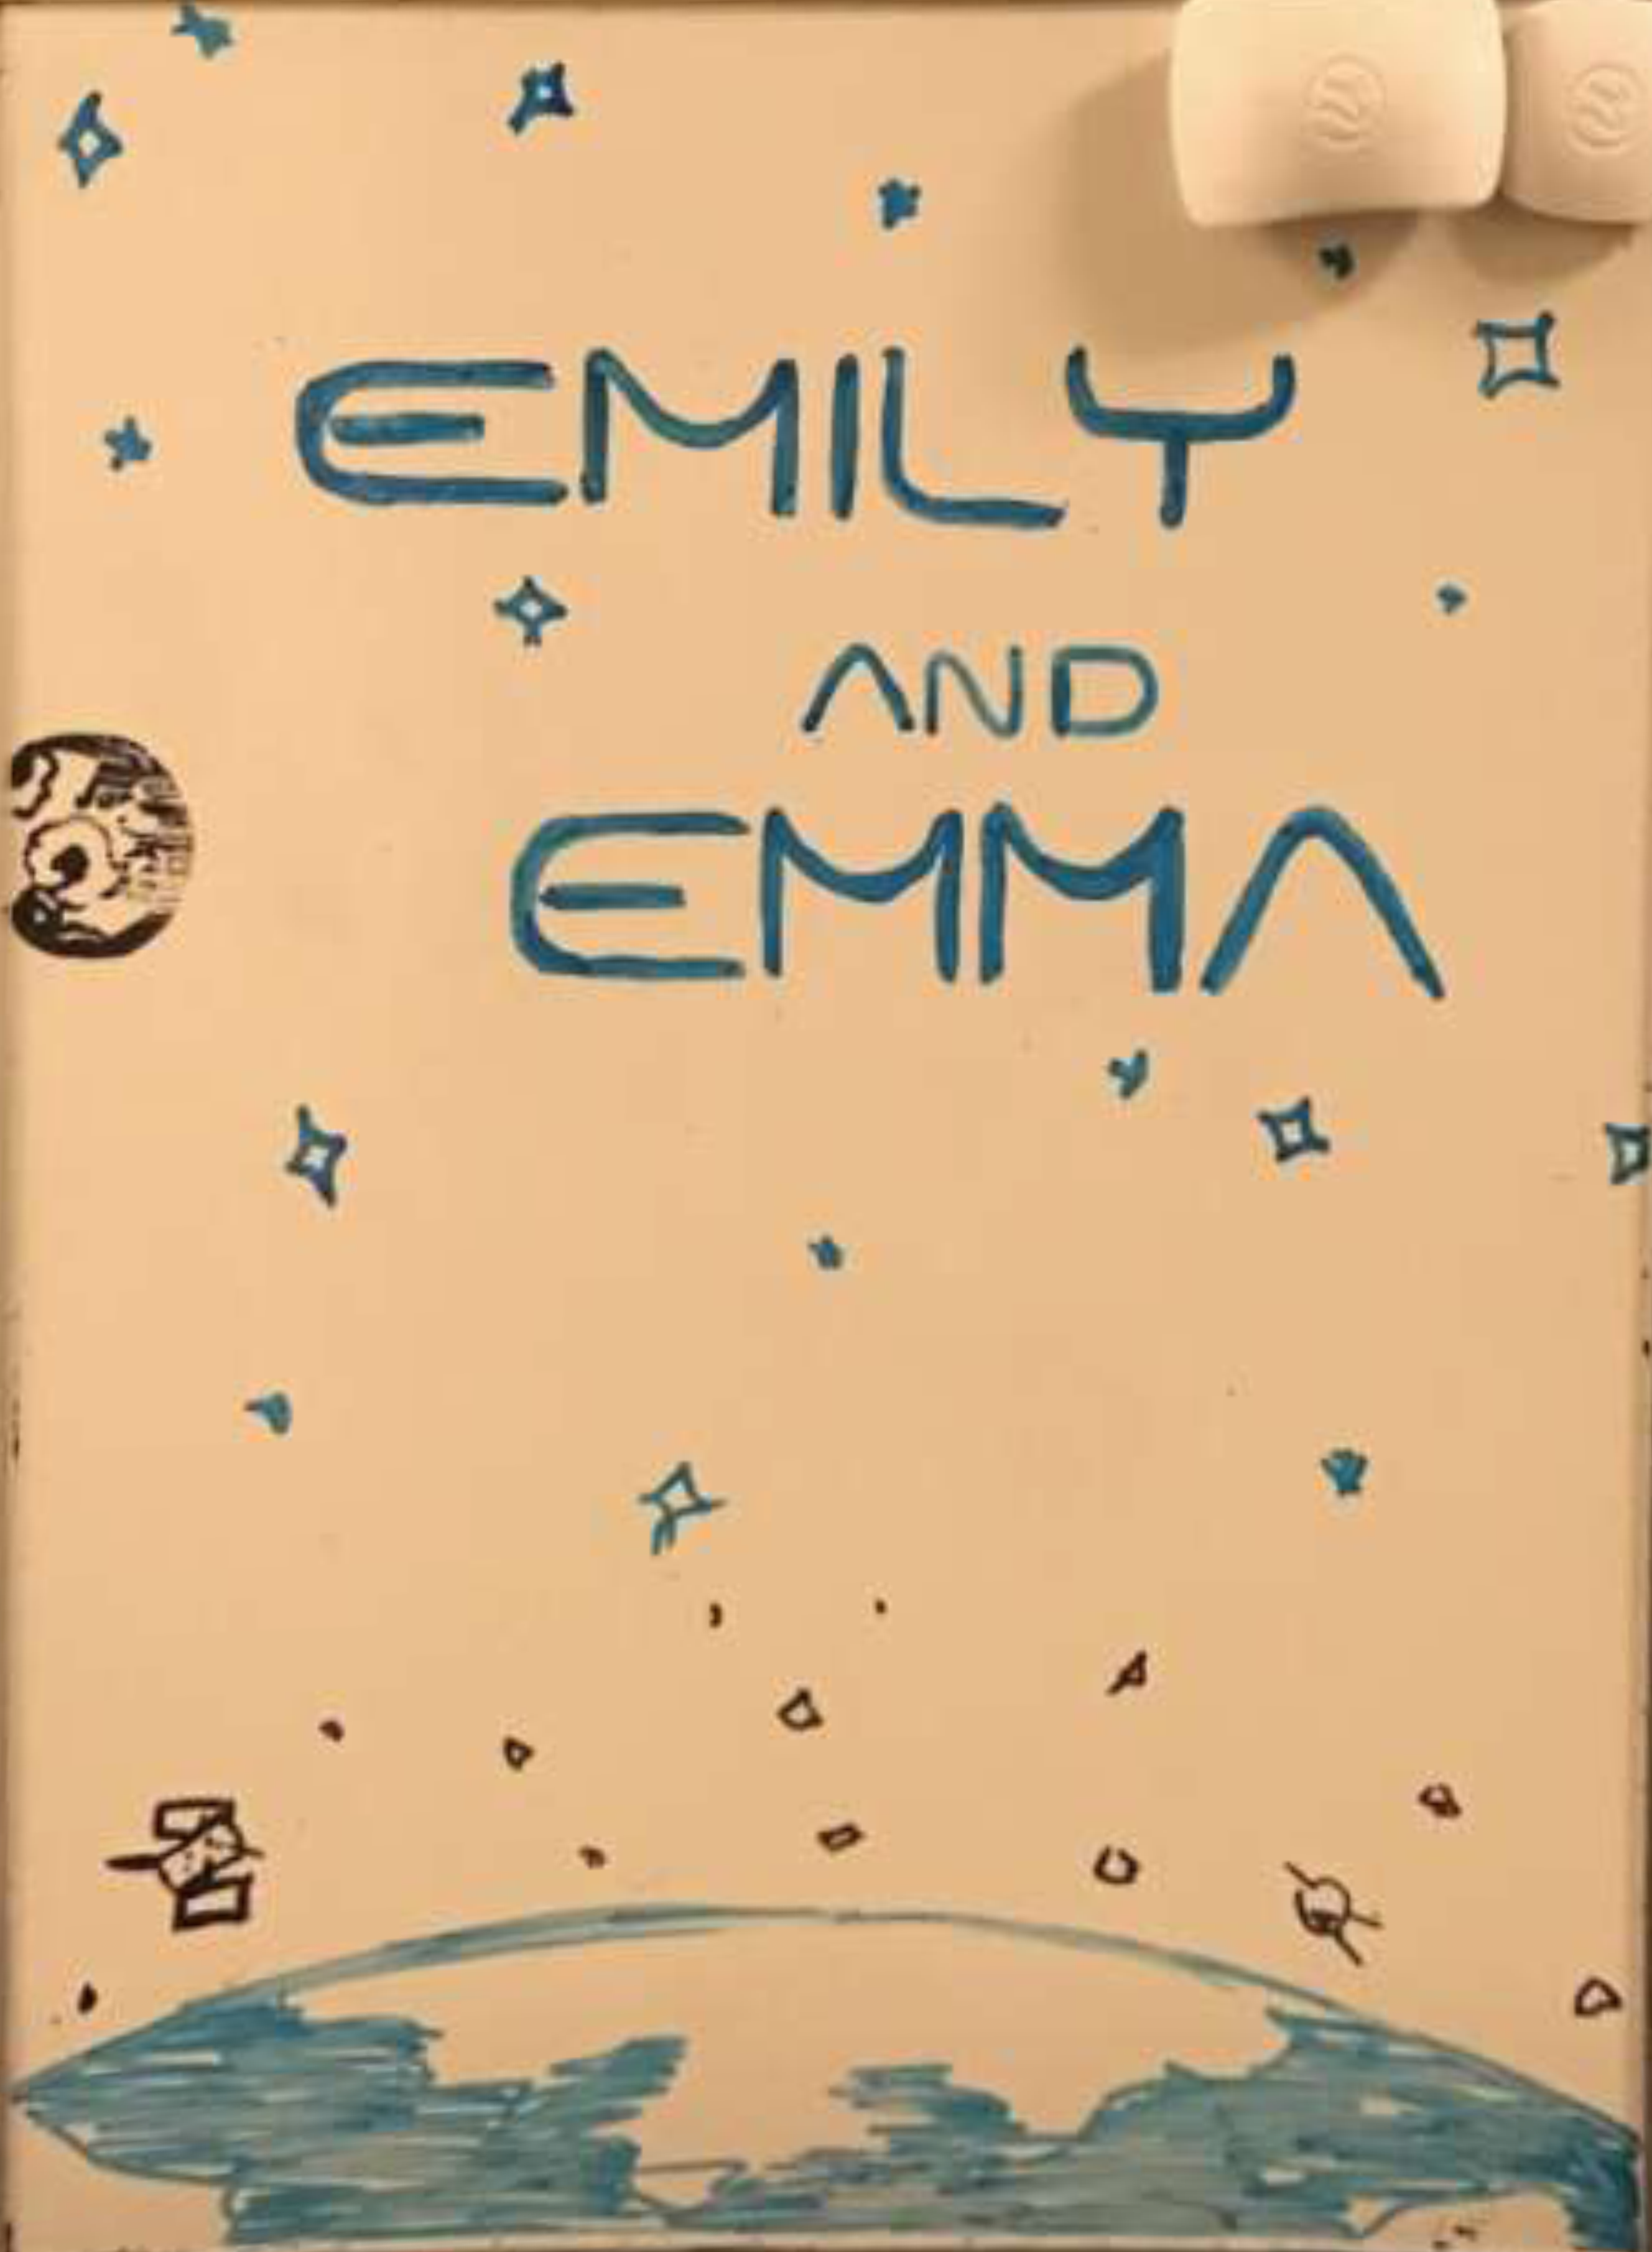 EMILY
AND
EMMA